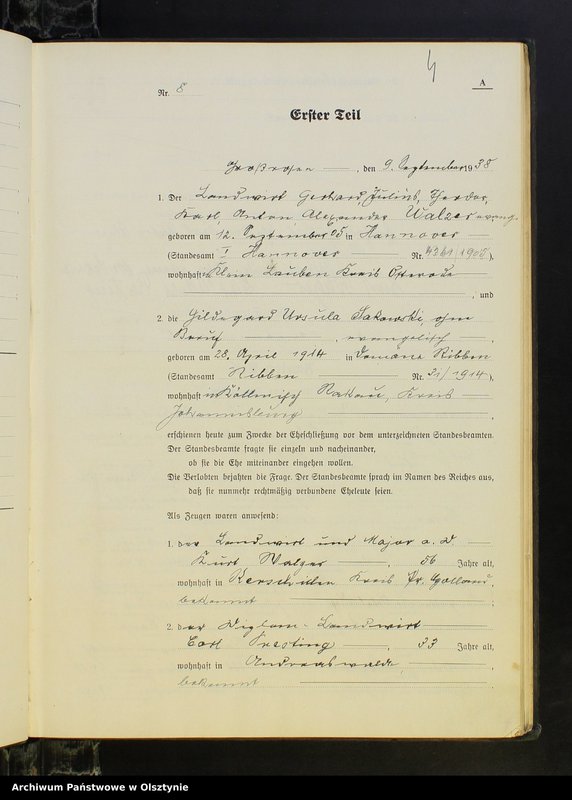 4
A
Nr. 8
Erster Teil
Großrosen, den 9. September 1938
1. Der Landwirt Gerhard, Julius, Theodor,
Karl, Anton Alexander Walzer evang.
geboren am 12. September 05 in Hannover
(Standesamt I Hannover Nr. 4361/1905),
wohnhaft in Klein Lauben Kreis Osterode
, und
2. die Hildegard Ursula Sakowski, ohne
Beruf, evangelisch,
geboren am 28. April 1914 in Domäne Ribben
(Standesamt Ribben Nr. 21/1914),
wohnhaft in Köllmisch Rakau, Kreis
Johannisburg,
erschienen heute zum Zwecke der Eheschließung vor dem unterzeichneten Standesbeamten.
Der Standesbeamte fragte sie einzeln und nacheinander,
ob sie die Ehe miteinander eingehen wollen.
Die Verlobten bejahten die Frage. Der Standesbeamte sprach im Namen des Reiches aus,
daß sie nunmehr rechtmäßig verbundene Eheleute seien.
Als Zeugen waren anwesend:
1. der Landwirt und Major a. D.
Kurt Walzer, 56 Jahre alt,
wohnhaft in Kreis Pr. Holland,
bekannt;
2. der Diplom-Landwirt
33 Jahre alt,
wohnhaft in Andreaswalde,
bekannt
Archiwum Państwowe w Olsztynie